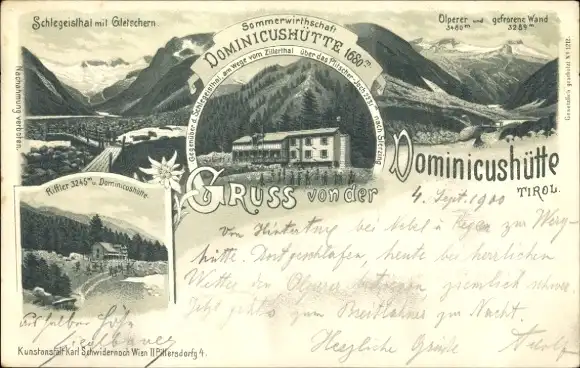 Schlegeisthal mit Gletschern
Sommerwirthschaft
DOMINICUSHÜTTE 1680 m.
Gegenüber d. Schlegeisthal, am Wege vom Zillerthal über das Pfitscher-Joch nach Sterzing
Olperer und gefrorene Wand
3480 m. 3289 m.
Nachahmung verboten.
Gesetzlich geschützt No 1212.
Riffler 3245 m u. Dominicushütte.
GRUSS von der Dominicushütte
TIROL.
4. Sept. 1900
Von Hintertux bei Nebel u. Regen zur
hütte. Dort geschlafen, heute bei herrlichem
Wetter den Olperer ziemlich schwer.
Jetzt zum Breitlahner zur Nacht.
Herzliche Grüße Adolf
Kunstanstalt Karl Schwidernoch Wien II Pillersdorfg 4.